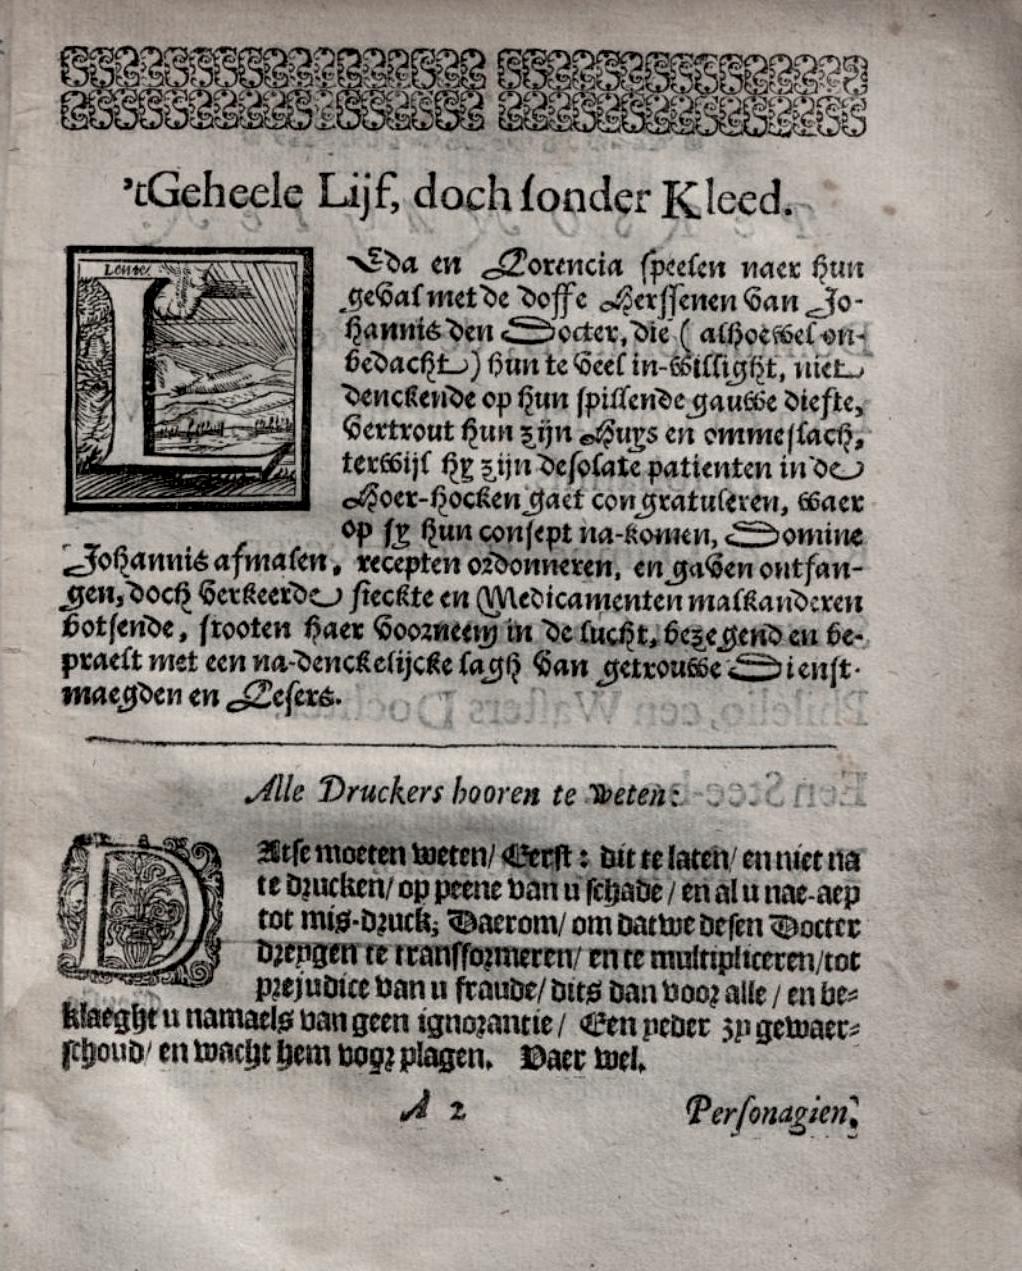 'tGeheele Lijf, doch sonder Kleed.
Lente
LEda en Lorencia speelen naer hun
geval met de doffe Herssenen van Jo-
hannis den Docter, die ( alhoewel on-
bedacht ) hun te veel in-willight, niet
denckende op hun spillende gauwe diefte,
vertrout hun zijn Huys en ommeslach,
terwijl hy zijn desolate patienten in de
Hoer-hocken gaet congratuleren, waer
op sy hun consept na-komen, Domine
Johannis afmalen, recepten ordonneren, en gaven ontfan-
gen, doch verkeerde sieckte en Medicamenten malkanderen
botsende, stooten haer voorneem in de lucht, bezegend en be-
praelt met een na-denckelijcke lagh van getrouwe Dienst-
maegden en Lesers.
Alle Druckers hooren te weten:
DAtse moeten weten/ Eerst : dit te laten/ en niet na
te drucken/ op peene van u schade / en al u nae-aep
tot mis-druck; Daerom/ om datwe desen Docter
dreygen te transformeren/ en te multipliceren/tot
prejudice van u fraude/ dits dan voor alle / en be-
klaeght u namaels van geen ignorantie / Een yeder zy gewaer-
schoud/ en wacht hem voor plagen. Vaer wel.
A 2 Personagien.